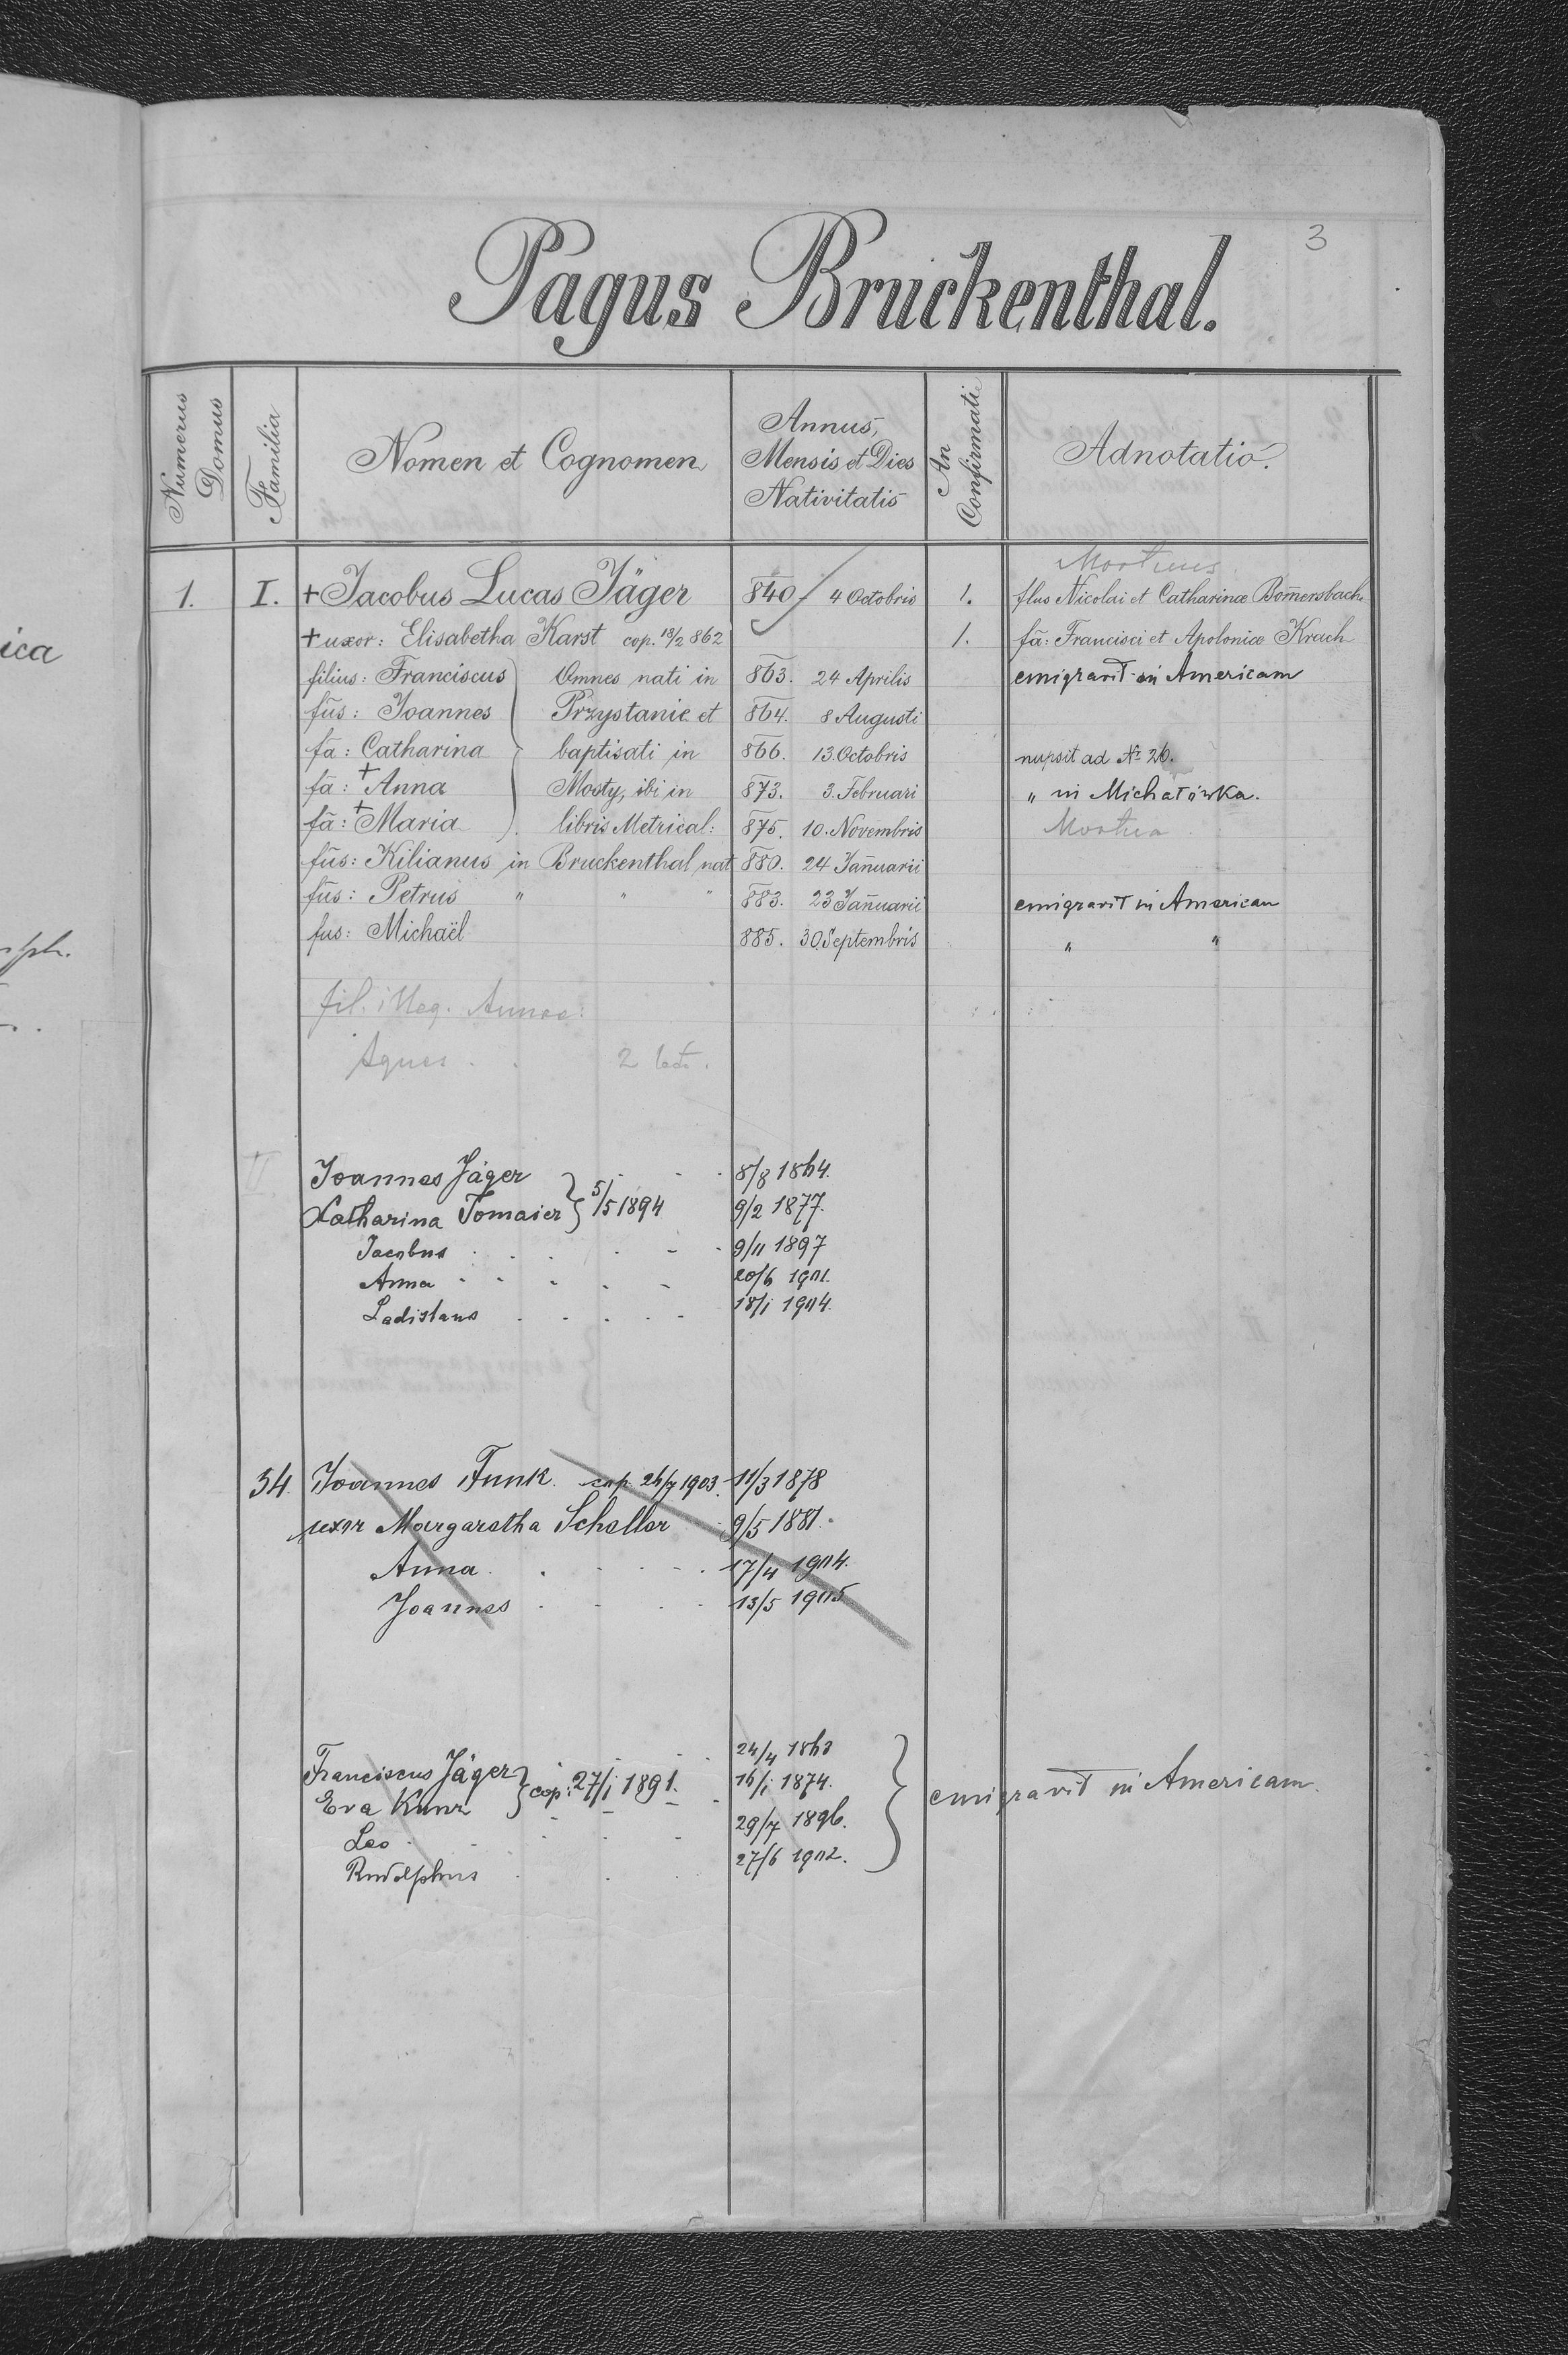 ica
3
Pagus Bruckenthal.
Numerus Domus
Familia
Nomen et Cognomen
Annus, Mensis et Dies Nativitatis
An Confirmati
Adnotatio.
Mortuus
1. I. + Jacobus Lucas Jäger 840 4 Octobris 1. flus Nicolai et Catharinæ Bom̄ersbach
+ uxor: Elisabetha Karst cop. 18/2 862 1. fā: Francisci et Apoloniæ Krach
filius: Franciscus Omnes nati in 863. 24 Aprilis emigravit in Americam
fūs: Joannes Przystanie et 864. 8 Augusti
fa: Catharina baptisati in 866. 13. Octobris nupsit ad № 26.
fa: + Anna Mosty, ibi in 873. 3. Februari " in Michałówka.
fā: + Maria libris Metrical: 875. 10. Novembris Mortua
fūs: Kilianus in Bruckenthal nat 880. 24 Jan̄uarii
fūs: Petrus " " " 883. 23 Jan̄uarii emigravit in American
fus: Michaël 885. 30 Septembris " "
fil. illeg. Annae:
Agnes 2
II
Joannes Jäger 8/8 1864.
Catharina Tomaier } 5/5 1894 9/2 1877.
Jacobus 9/11 1897
Anna 20/6 1901.
Ladislaus 18/1 1904.
34. Joannes Funk. cop. 26/7 1903. 11/3 1878
uxor Margaretha Scheller 9/5 1881.
Anna 17/4 1904.
Joannes 13/5 1905
Franciscus Jäger 24/4 1863
Eva Kunz } cop: 27/1 1891. 16/1 1874. } emigravit in Americam.
Leo 29/7 1896.
Rudolphus 27/6 1902.